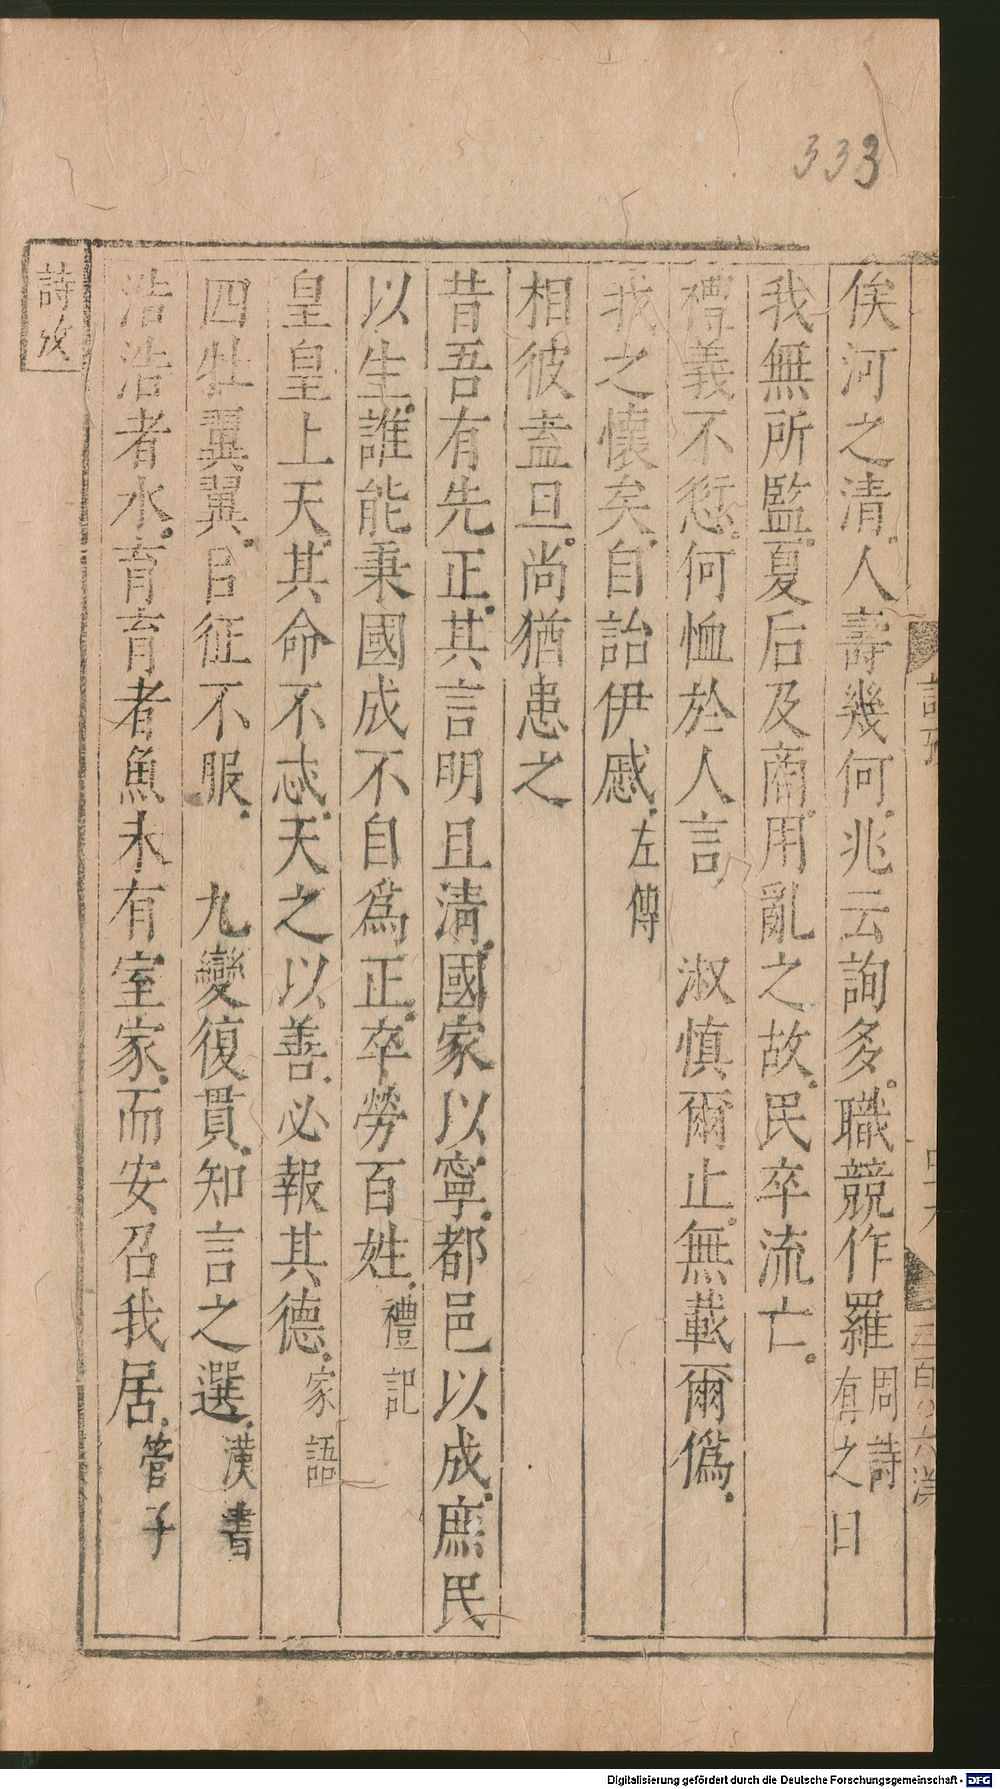 333
俟河之清人壽幾何兆云詢多職競作羅周詩有之日
我無所監夏后及商用亂之故民卒流亡
禮義不愆何恤於人言　淑慎爾止無載爾僞
我之懷矣自詒伊慼左傳
相彼盍旦尚猶患之
昔吾有先正其言明且淸國家以寧都邑以成庶民
以生誰能秉國成不自爲正卒勞百姓禮記
皇皇上天其命不忒天之以善必報其德家語
四牡翼翼㠯征不服　九變復貫知言之選漢書
浩浩者水育育者魚未有室家而安召我居管子
詩攷
Digitalisierung gefördert durch die Deutsche Forschungsgemeinschaft - DFG